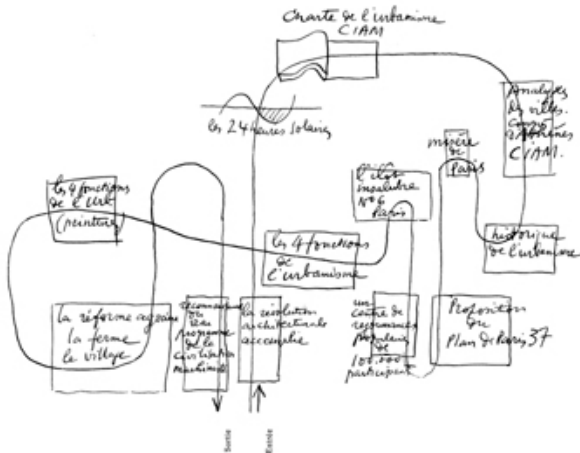 Charte de l'urbanisme
CIAM
les 24 heures solaires
Analyses
des villes.
d'Athènes
CIAM.
misère de
Paris
l'ilot
insalubre
No 6
Paris
les 4 fonctions
de l'Urb
(peinture)
les 4 fonctions
de
l'urbanisme
historique
de l'urbanisme
la réforme agraire
la ferme
le village
du
programme
de la
civilisation
machiniste
la révolution
architecturale
accomplie
un
centre de
réjouissances
populaires
de
100.000
participants
Proposition
du
Plan de Paris 37
Sortie
Entrée